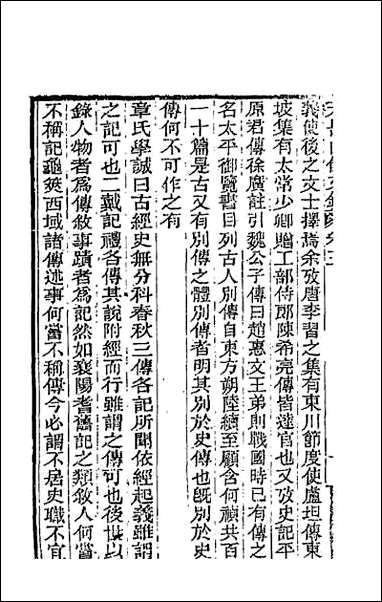 義使後之文士擇焉余攷唐李習之集有東川節度使盧坦傳東
坡集有太常少卿贈工部侍郎陳希亮傳皆達官也又攷史記平
原君傳徐廣註引魏公子傳曰趙惠文王弟則戰國時已有傳之
名太平御覽書目列古人別傳自東方朔陸績至顧含何禎共百
一十篇是古又有別傳之體別傳者明其別於史傳也旣別於史
傳何不可作之有
章氏學誠曰古經史無分科春秋三傳各記所聞依經起義雖謂
之記可也二戴記禮各傳其說附經而行雖謂之傳可也後世以
錄人物者爲傳敘事蹟者爲記然如襄陽耆舊記之類敘人何當
不稱記龜筴西域諸傳述事何當不稱傳今必謂不居史職不宜